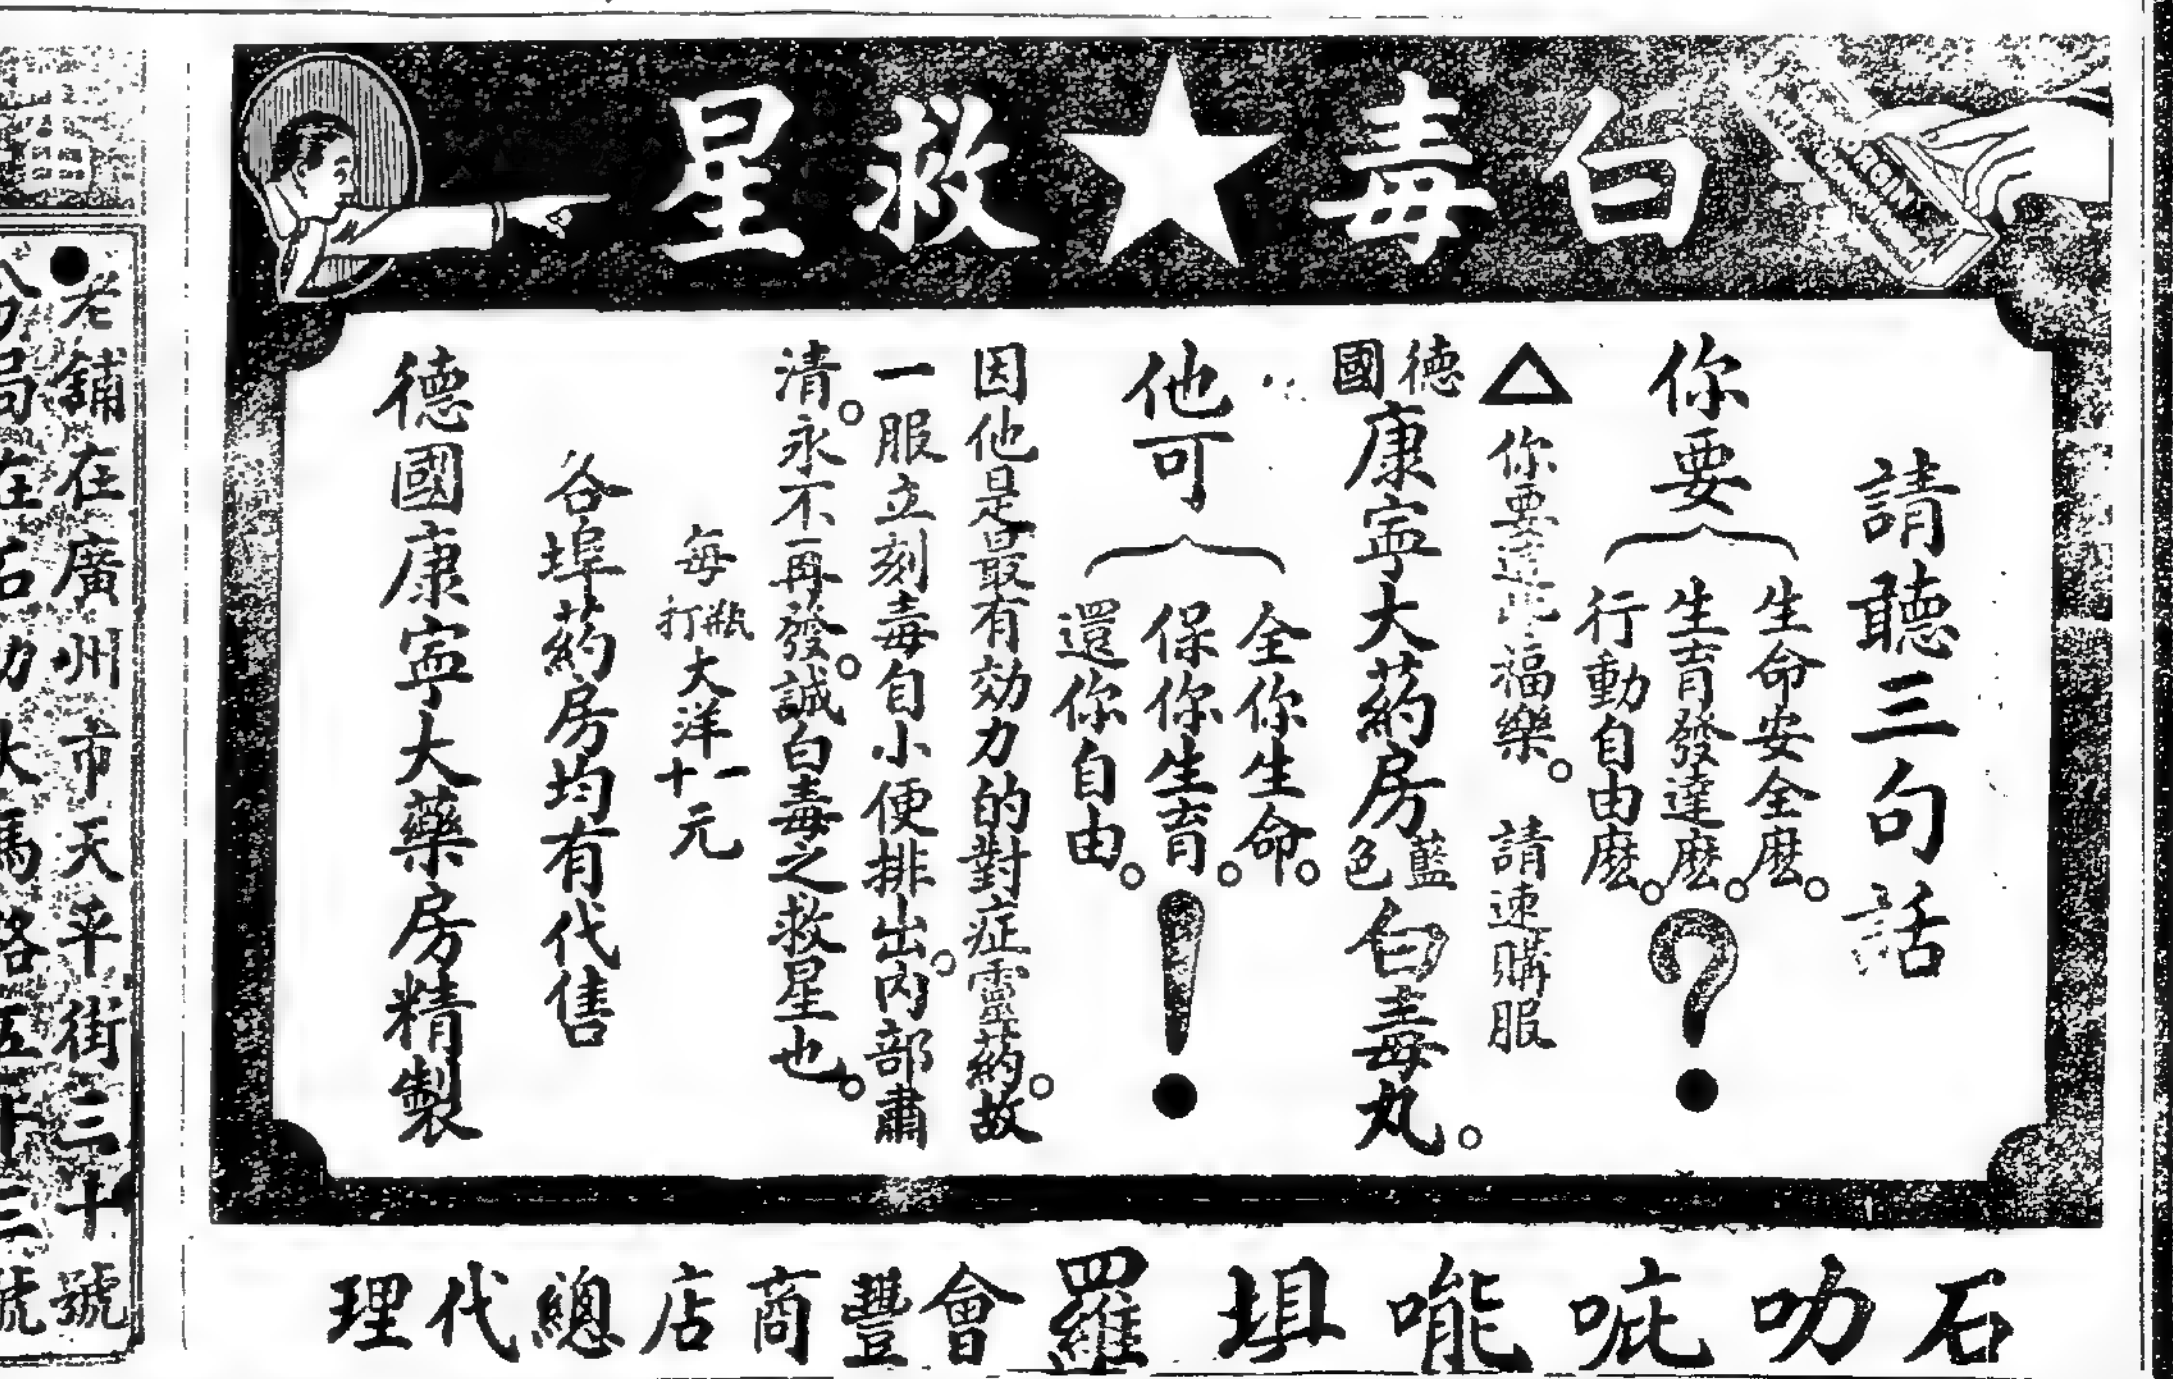 白毒★救星
請聽三句話
你要
生命安全麼。
生育發達麼。
行動自由麼。
?
△你要達此福樂。 請速購服
德國康寧大药房藍色白毒丸。
他可
全你生命。
保你生育。
還你自由。
!
因他是最有効力的對症靈药。故
一服立刻毒自小便排出。內部肅
清。永不再發。誠白毒之救星也。
每瓶大洋一元
打十
各埠药房均有代售
德國康寧大藥房精製
石叻 吡能 埧羅 會豐商店總代理
●老舖在廣州市天平街三十號
分局在石叻大馬路五十三號